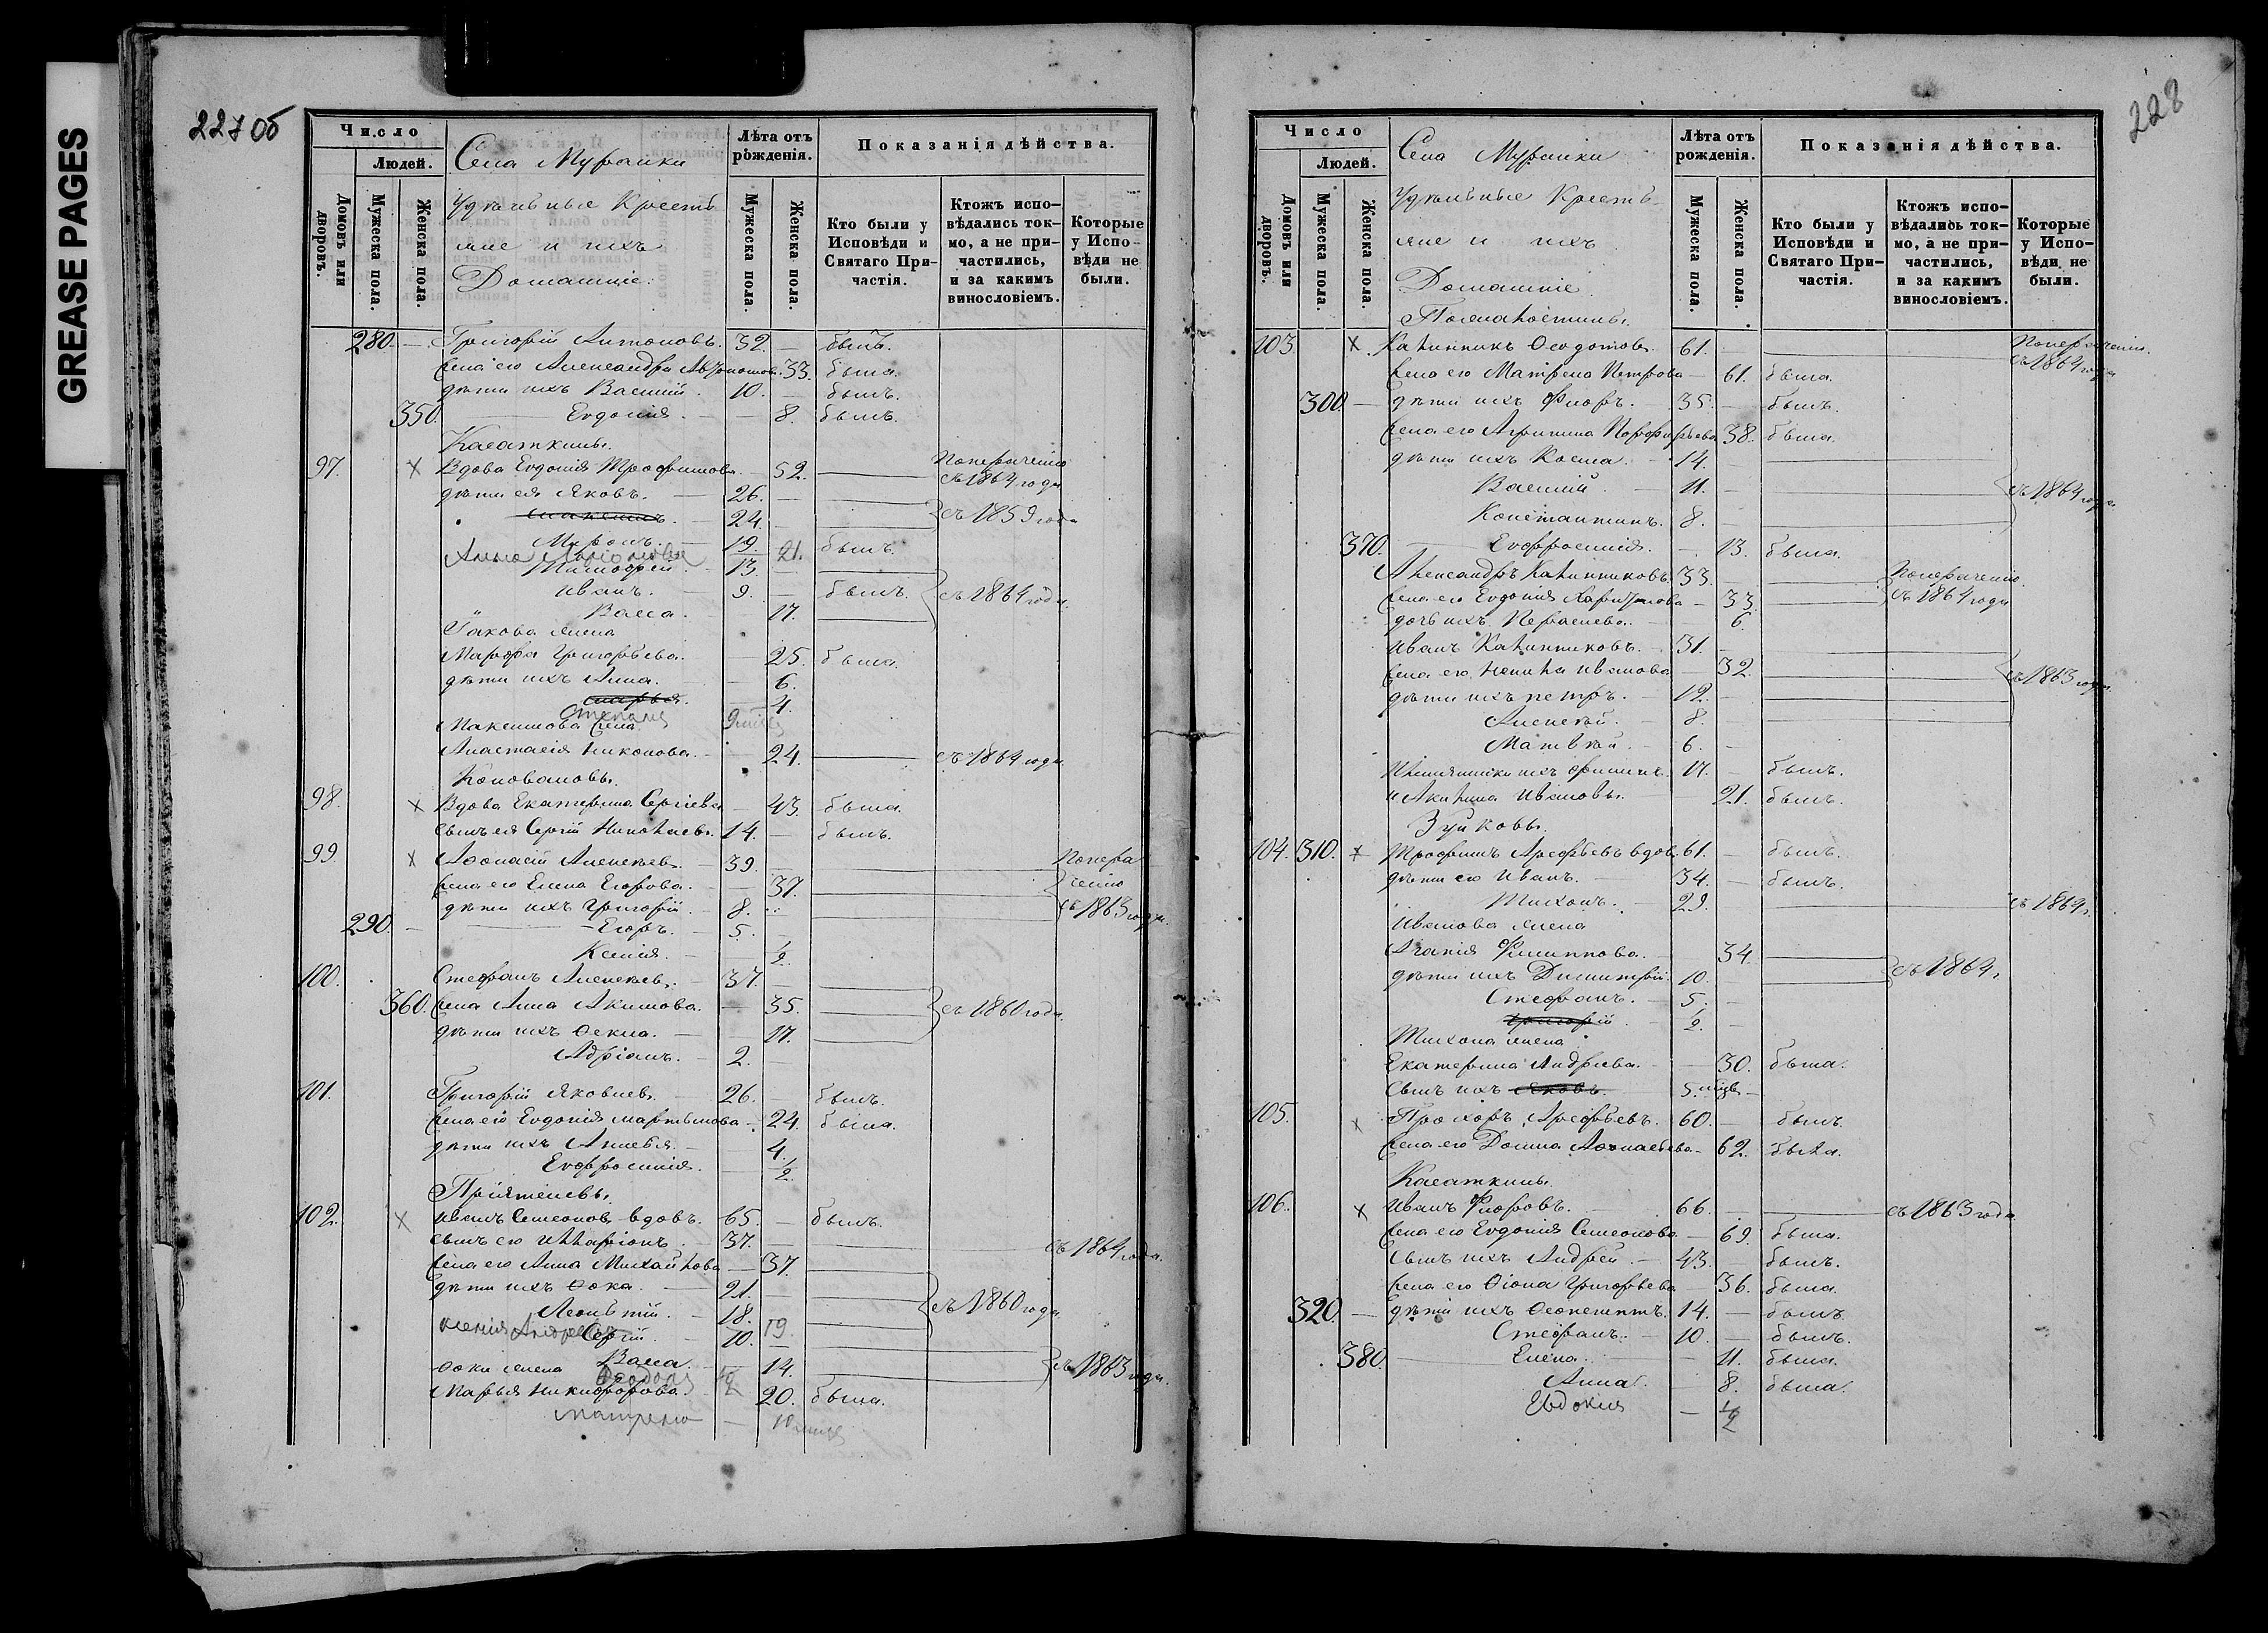 GREASE PAGES
227 об
Число
Людей.
Домовъ или дворовъ.
Мужеска пола.
Женска пола.
Села Муранки
Удѣльные Кресть
яне и ихъ
Домашніе.
Лѣта отъ рожденія.
Мужеска пола.
Женска пола.
Показанія дѣйства.
Кто были у Исповѣди и Святаго При-частія.
Ктожъ испо-вѣдались ток-мо, а не при-частились, и за какимъ винословіемъ.
Которые у Испо-вѣди не были.
280. — Григорій Антоновъ. 32. — былъ.
жена его Александра 33. была.
дѣти ихъ Василій. 10. — былъ.
350. Евдокія. — 8. былъ.
Касаткины.
97. х Вдова Евдокія Трофимова. — 52. Понераченію съ 1864 года
дѣти ея Яковъ. — 26. —
24. съ 1859 года
Миронъ. 19. былъ.
Анна 21.
Тимофей. 13. —
Иванъ. — 9. — былъ. съ 1864 года.
" Васса. — 17.
Іакова жена
Марфа Григорьева. — 25. была.
дѣти ихъ Анна. — 6.
Марья. 4.
Максимова жена
Анастасія Никонова. — 24. съ 1864 года
Коноваловы.
98. х Вдова Екатерина Сергіева — 43. была.
сынъ ея Сергій Николаевъ. 14. — былъ.
99. х Афонасій Алексѣевъ. 39. — Понера
жена его Елена Егорова. — 37. ченію
дѣти ихъ Григорій. 8. съ 1863 года.
290. — Егоръ. — 5. —
Ксенія. — 1/2.
100. Стефанъ Алексѣевъ. — 37. —
360. жена Анна Акимова. — 35. съ 1860 года.
дѣти ихъ Ѳекла. — 17.
Адріанъ. — 2. —
101. Григорій Яковлевъ. 26. — былъ.
жена его Евдокія Мартынова — 24. была.
дѣти ихъ — 4.
Евфросинія. — 1/2
Пріятелевы.
102. х Иванъ Семеоновъ вдовъ. 65. — былъ.
сынъ его Илларіонъ. 37. — съ 1864 года.
жена его Анна Михайлова — 37.
дѣти ихъ Ѳока. — 21. —
Леонтій. — 18. съ 1860 года
Ксенія Андреева 19.
Сергій. — 10. —
Васса. — 14. съ 1863 года.
Ѳоки жена
Ѳеодоръ 1/2
Марья Никифорова. 20. была.
Матрена —
228
Число
Людей.
Домовъ или дворовъ.
Мужеска пола.
Женска пола.
Села Муранки
Удѣльные Кресть-
яне и ихъ
Домашніе.
Лѣта отъ рожденія.
Мужеска пола.
Женска пола.
Показанія дѣйства.
Кто были у Исповѣди и Святаго При-частія.
Ктожъ испо-вѣдались ток-мо, а не при-частились, и за какимъ винословіемъ.
Которые у Испо-вѣди не были.
103. х Калинникъ Ѳеодотовъ. 61. — Понераченію. съ 1864 года
жена его Матрена Петрова — 61. была.
300. — дѣти ихъ Флоръ. — 35. — былъ.
жена его Агрипина Порфирьева 38. была.
дѣти ихъ Косма. 14. —
Василій. — 11. — съ 1864 года
Константинъ. 8. —
370. — Евфросинія. — 13. была.
Александръ Калинниковъ. 33. — Понераченію.
жена его Евдокія Харитонова — 33. съ 1864 года
дочь ихъ — 6.
Иванъ Калинниковъ. — 31. —
жена его Ивановна — 32. съ 1863 года.
дѣти ихъ Петръ. — 12. —
Алексѣй. — 8. —
Матвѣй. — 6. —
Племянники ихъ Филиппъ. 17. — былъ.
и Акилина Ивановы. — 21. былъ.
Зуйковы.
104. 310. х Трофимъ Арефьевъ вдов. 61. — былъ.
дѣти его Иванъ. 34. — былъ.
Тихонъ. 29. съ 1864 г.
Иванова жена
Агапія Филиппова. — 34.
дѣти ихъ Димитрій. 10. — съ 1864 г.
Стефанъ. — 5. —
Григорій. — 1/2. —
Тихона жена
Екатерина Андреева. — 30. была.
сынъ ихъ Яковъ. 5. мѣсц. —
105. х Прохоръ Арефьевъ. 60. — былъ.
жена его Домна Афонасьева — 62. была.
Касаткины.
106. х Иванъ Флоровъ. — 66. — съ 1863 года
жена его Евдокія Семеонова — 69. была.
сынъ ихъ Андрей. — 43. — былъ.
жена его Григорьева — 36. была.
320. — дѣти ихъ Ѳеопемптъ. 14. — былъ.
Стефанъ. — 10. — былъ.
380. — Елена. — 11. была.
Анна. — 8. была.
Евдокия — 1/2